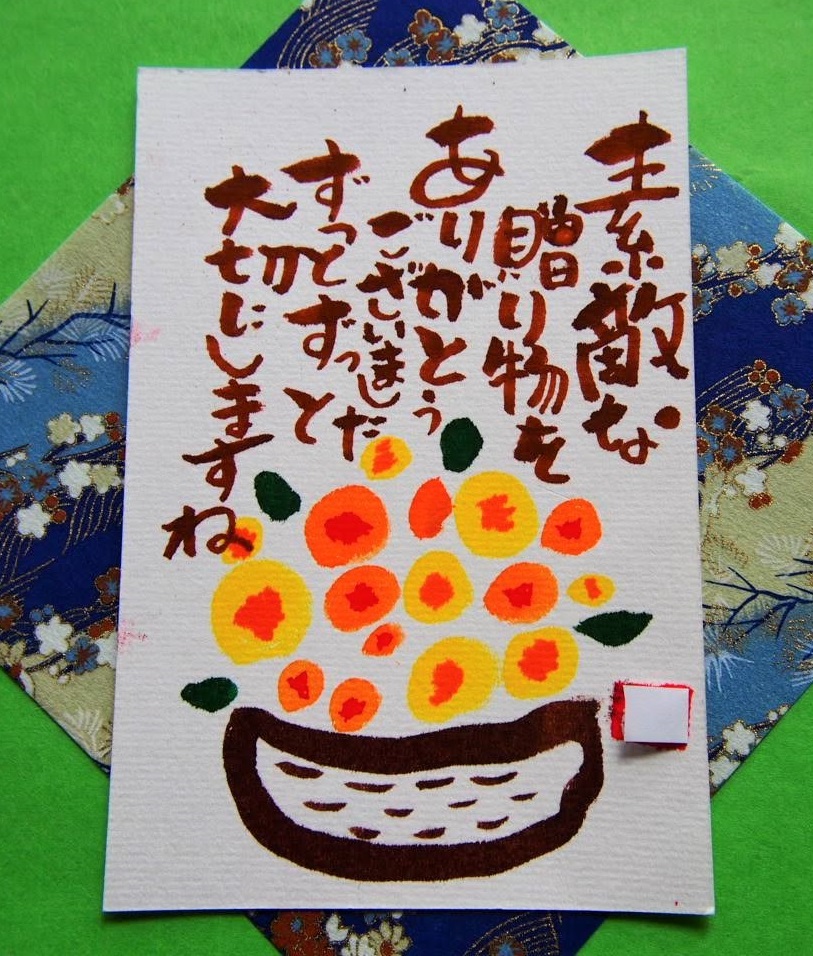 素敵な
贈り物を
ありがとう
ございました
ずっとずっと
大切にしますね